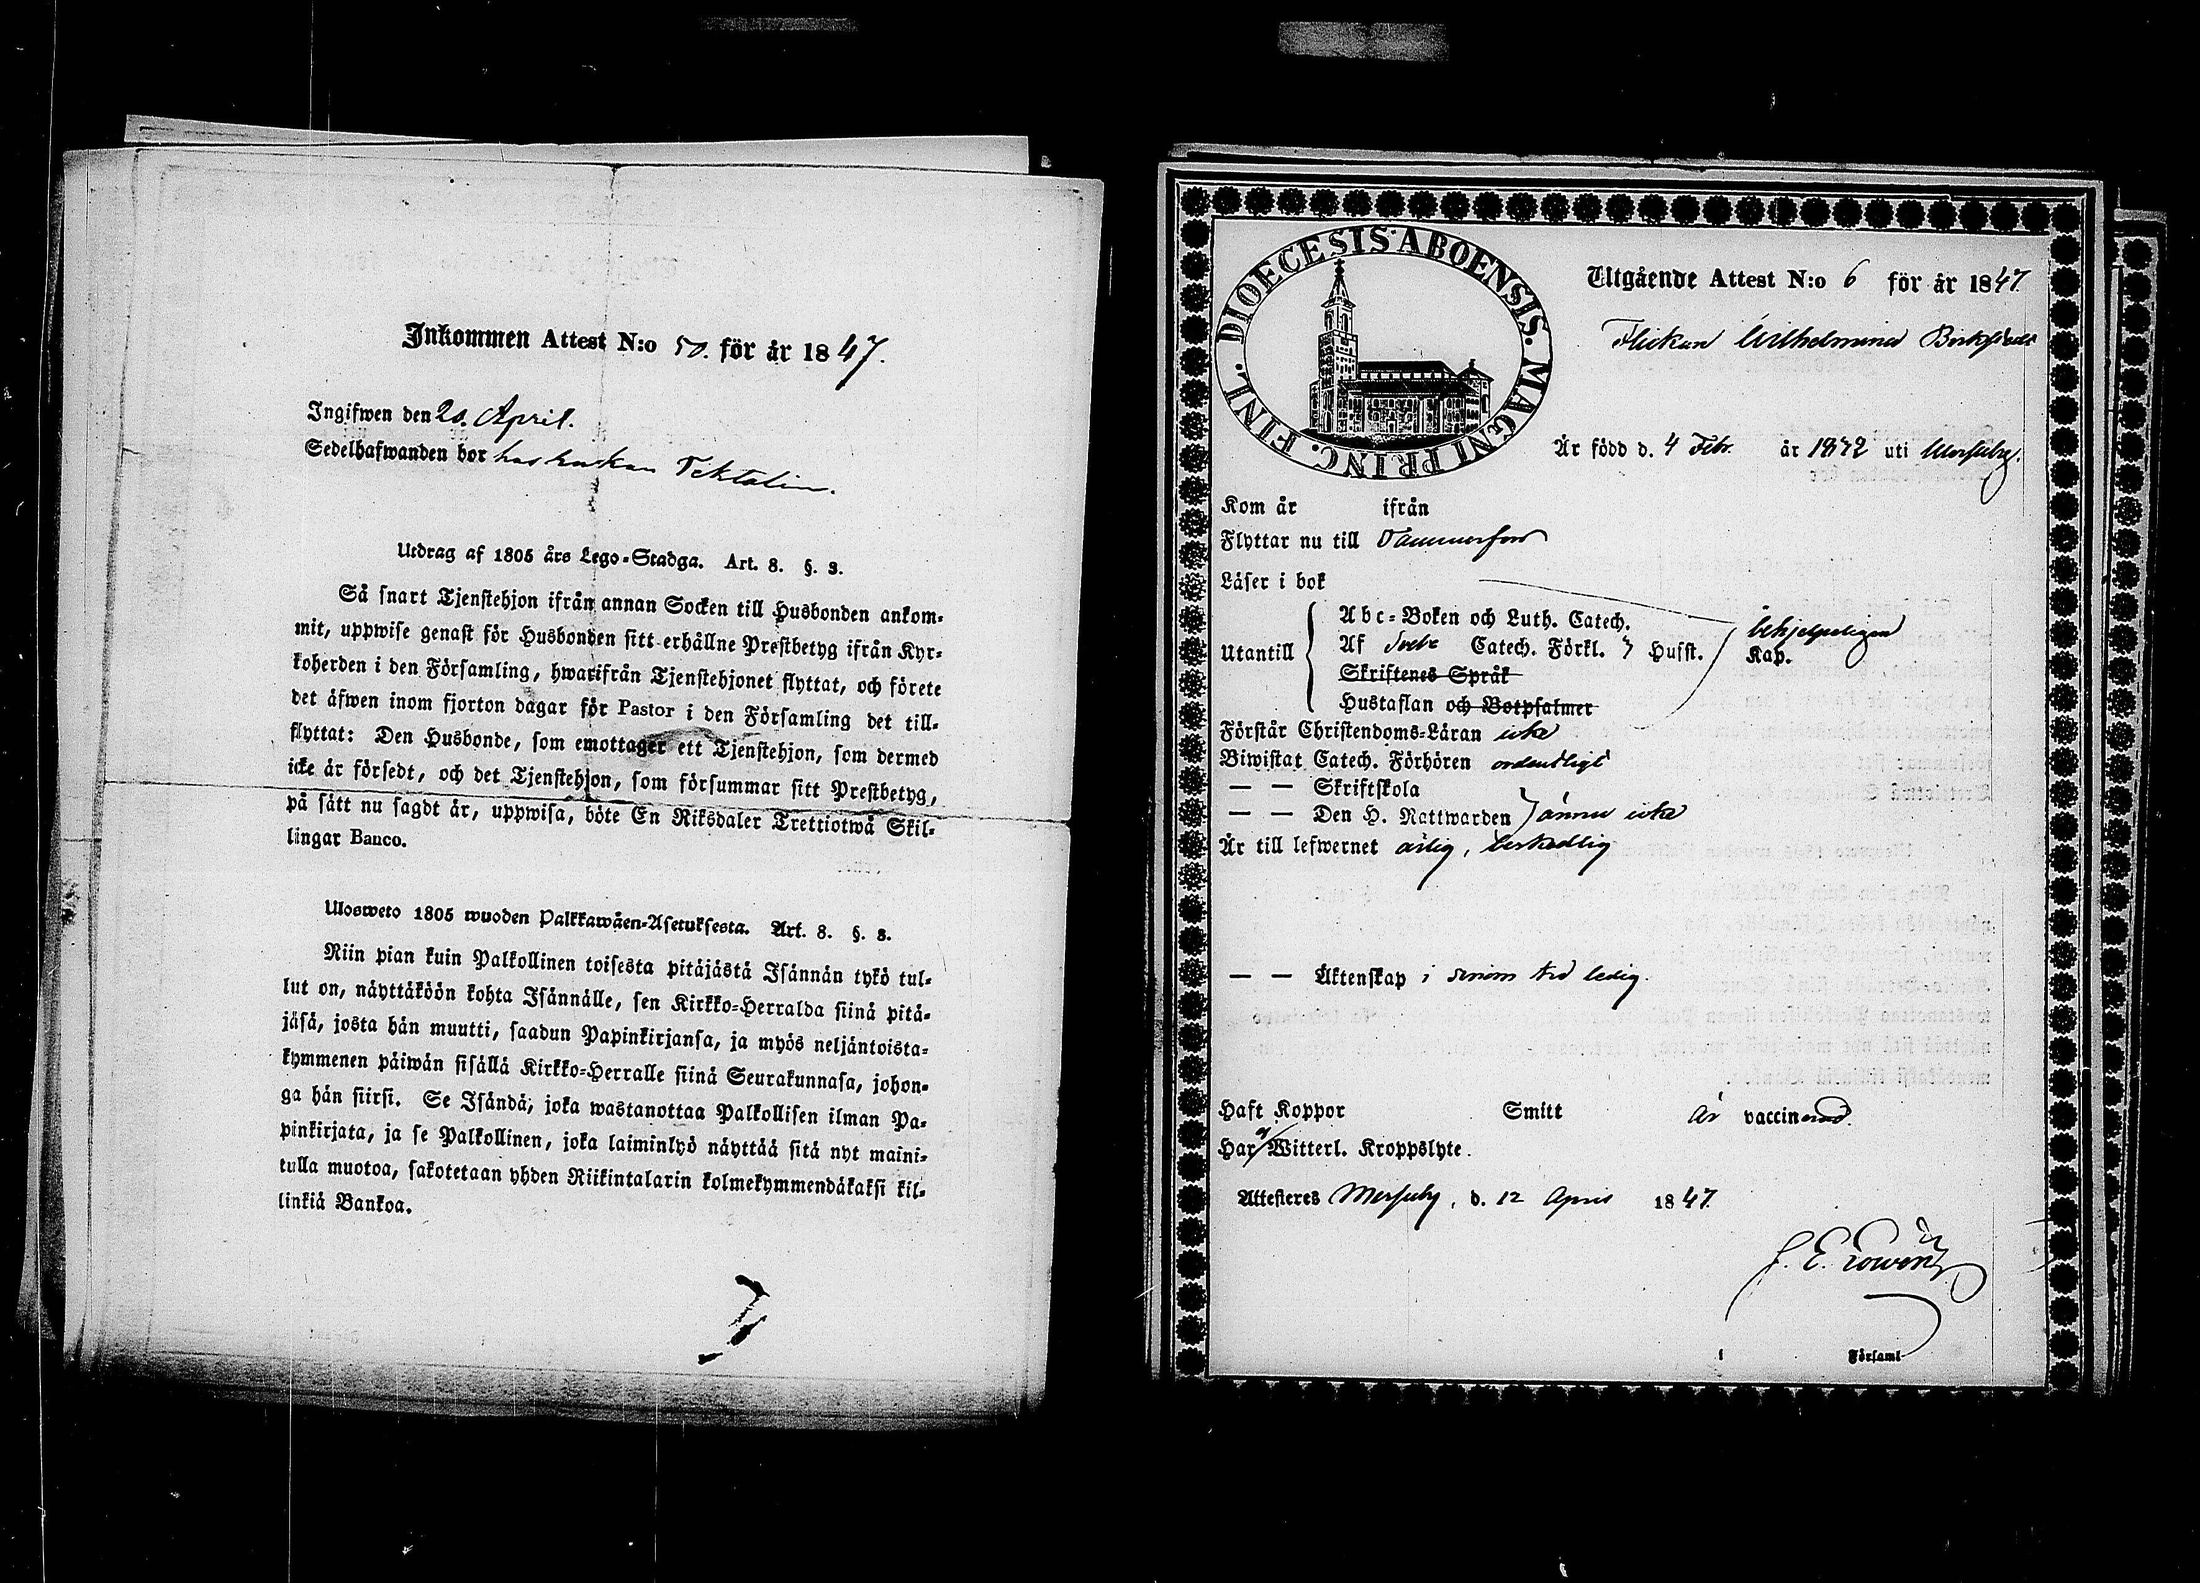 Inkommen Attest N:o 50. för år 1847.
Ingifwen den 20. April.
Sedelhafwanden bor hos
Utdrag af 1805 års Lego-Stadga. Art. 8. §. 3.
Så snart Tjenstehjon ifrån annan Socken till Husbonden ankom-
mit, uppwise genast för Husbonden sitt erhållne Prestbetyg ifrån Kyr-
koherden i den Församling, hwarifrån Tjenstehjonet flyttat, och förete
det äfwen inom fjorton dagar för Pastor i den Församling det till-
flyttat: Den Husbonde, som emottager ett Tjenstehjon, som dermed
icke är försedt, och det Tjenstehjon, som försummar sitt Prestbetyg,
på sätt nu sagdt är, uppwisa, böte En Riksdaler Trettiotwå Skil-
lingar Banco.
Ulosweto 1805 wuoden Palkkawäen-Asetuksesta. Art. 8. §. 3.
Niin pian kuin Palkollinen toisesta pitäjästä Isännän tykö tul-
lut on, näyttäköön kohta Isännälle, sen Kirkko-Herralda siinä pitä-
jäsä, josta hän muutti, saadun Papinkirjansa, ja myös neljäntoista-
kymmenen päiwän sisällä Kirkko-Herralle siinä Seurakunnasa, johon-
ga hän siirsi. Se Isändä, joka wastanottaa Palkollisen ilman Pa-
pinkirjata, ja se Palkollinen, joka laiminlyö näyttää sitä nyt maini-
tulla muotoa, sakotetaan yhden Riikintalarin kolmekymmendäkaksi kil-
linkiä Bankoa.
DIOECESIS ABOENSIS. MAGNI PRINC. FINL.
Utgående Attest N:o 6 för år 1847.
Flickan Wilhelmina
Är född d. 4 Febr. år 1832 uti
Kom år ifrån
Flyttar nu till Tammerfors
Läser i bok
Utantill
Abc-Boken och Luth. Catech.
Af Sveb. Catech. Förkl. Husst. Kap.
Skriftenes Språk
Hustaflan och Botpsalmer
behjelpeligen
Förstår Christendoms-Läran icke
Biwistat Catech. Förhören ordentligt
— — Skriftskola
— — Den H. Nattwarden ännu icke
Är till lefwernet ärlig, beskedlig
— — Äktenskap i sinom tid ledig.
Haft Koppor Smitt är vaccinerad.
Har ej Witterl. Kroppslyte.
Attesteres d. 12 April 1847.
i Församl